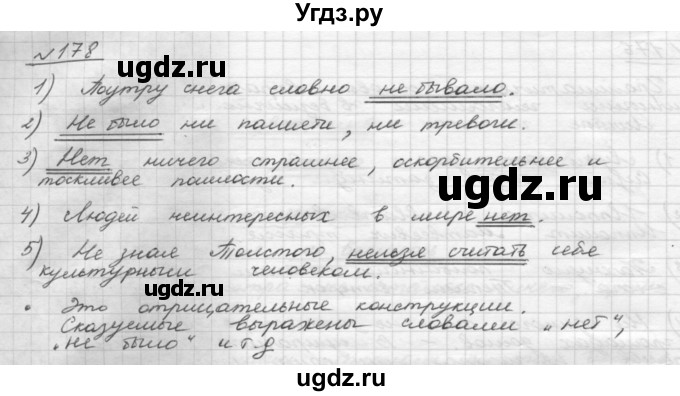 Угдз.ру
№178
ugdz.ru
1) Поутру снега словно не бывало.
2) Не было ни памяти, ни тревоги.
3) Нет ничего страшнее, оскорбительнее и
тоскливее пошлости.
ugdz.ru
4) Людей неинтересных в мире нет.
5) Не зная Толстого, нельзя считать себе
культурным человеком.
ugdz.ru
• Это отрицательные конструкции.
Сказуемые выражены словами „нет“,
„не было“ и т.д
ugdz.ru
ugdz.ru